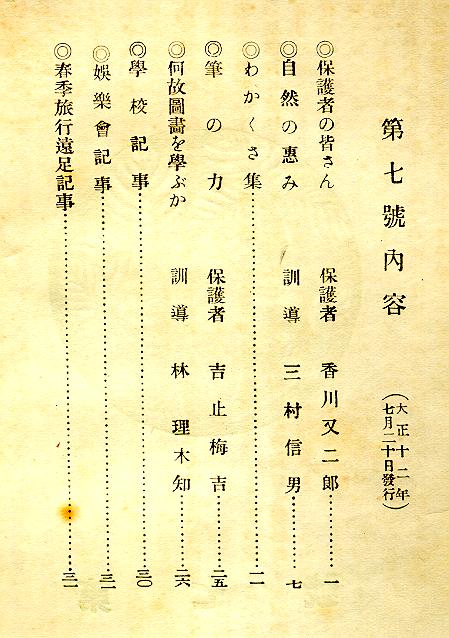 第七號內容
（大正十二年
七月二十日發行）
◎保護者の皆さん 保護者 香川又二郎…………一
◎自然の惠み 訓導 三村信男…………七
◎わかくさ集…………一一
◎筆の力 保護者 吉止梅吉…………二五
◎何故圖畫を學ぶか 訓導 林理木知…………二六
◎學校記事…………三〇
◎娛樂會記事…………三一
◎春季旅行遠足記事…………三一